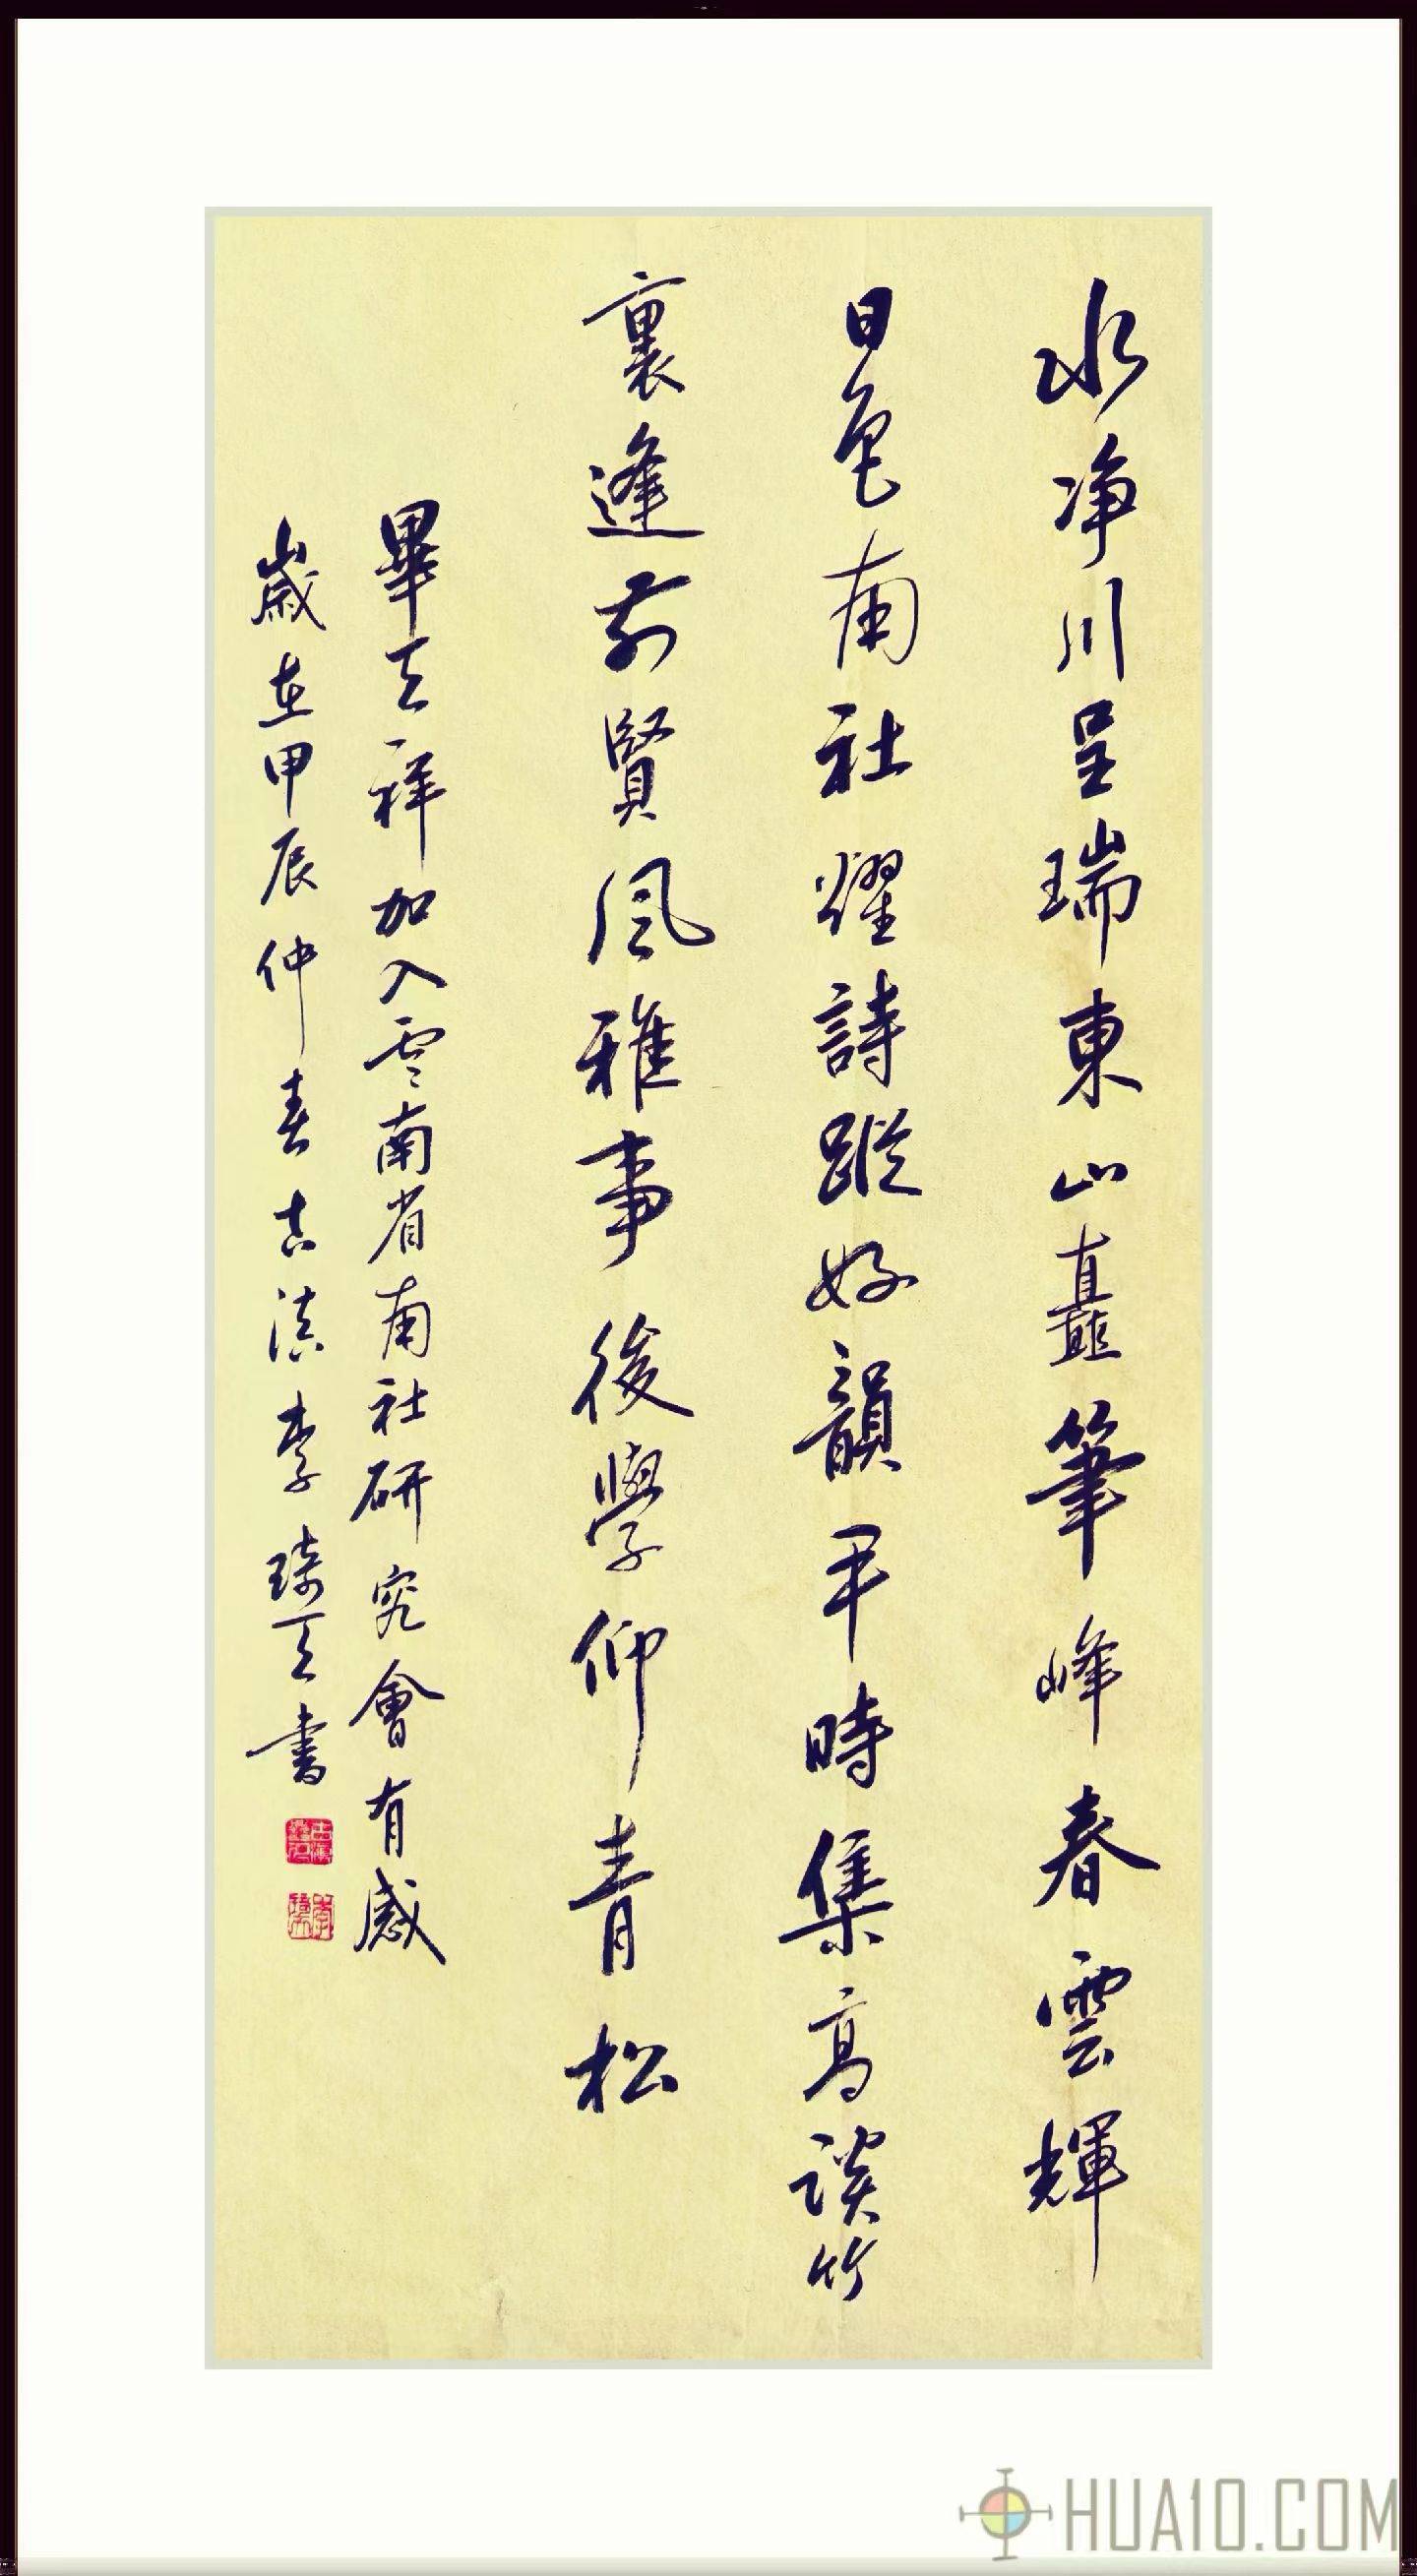 水净川呈瑞東山矗筆峰春雲輝
日色南社耀詩蹤好韻平時集高談竹
裏逢前賢風雅事後學仰青松
畢天祥加入雲南省南社研究會有感
歲在甲辰仲春古滇李琦天書
HUA10.COM